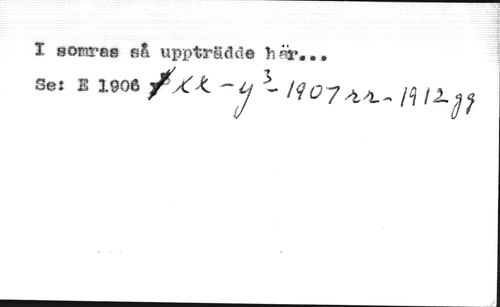 I somras så uppträdde här...
Se: E 1906 xx - y³ - 1907 rr - 1912 gg